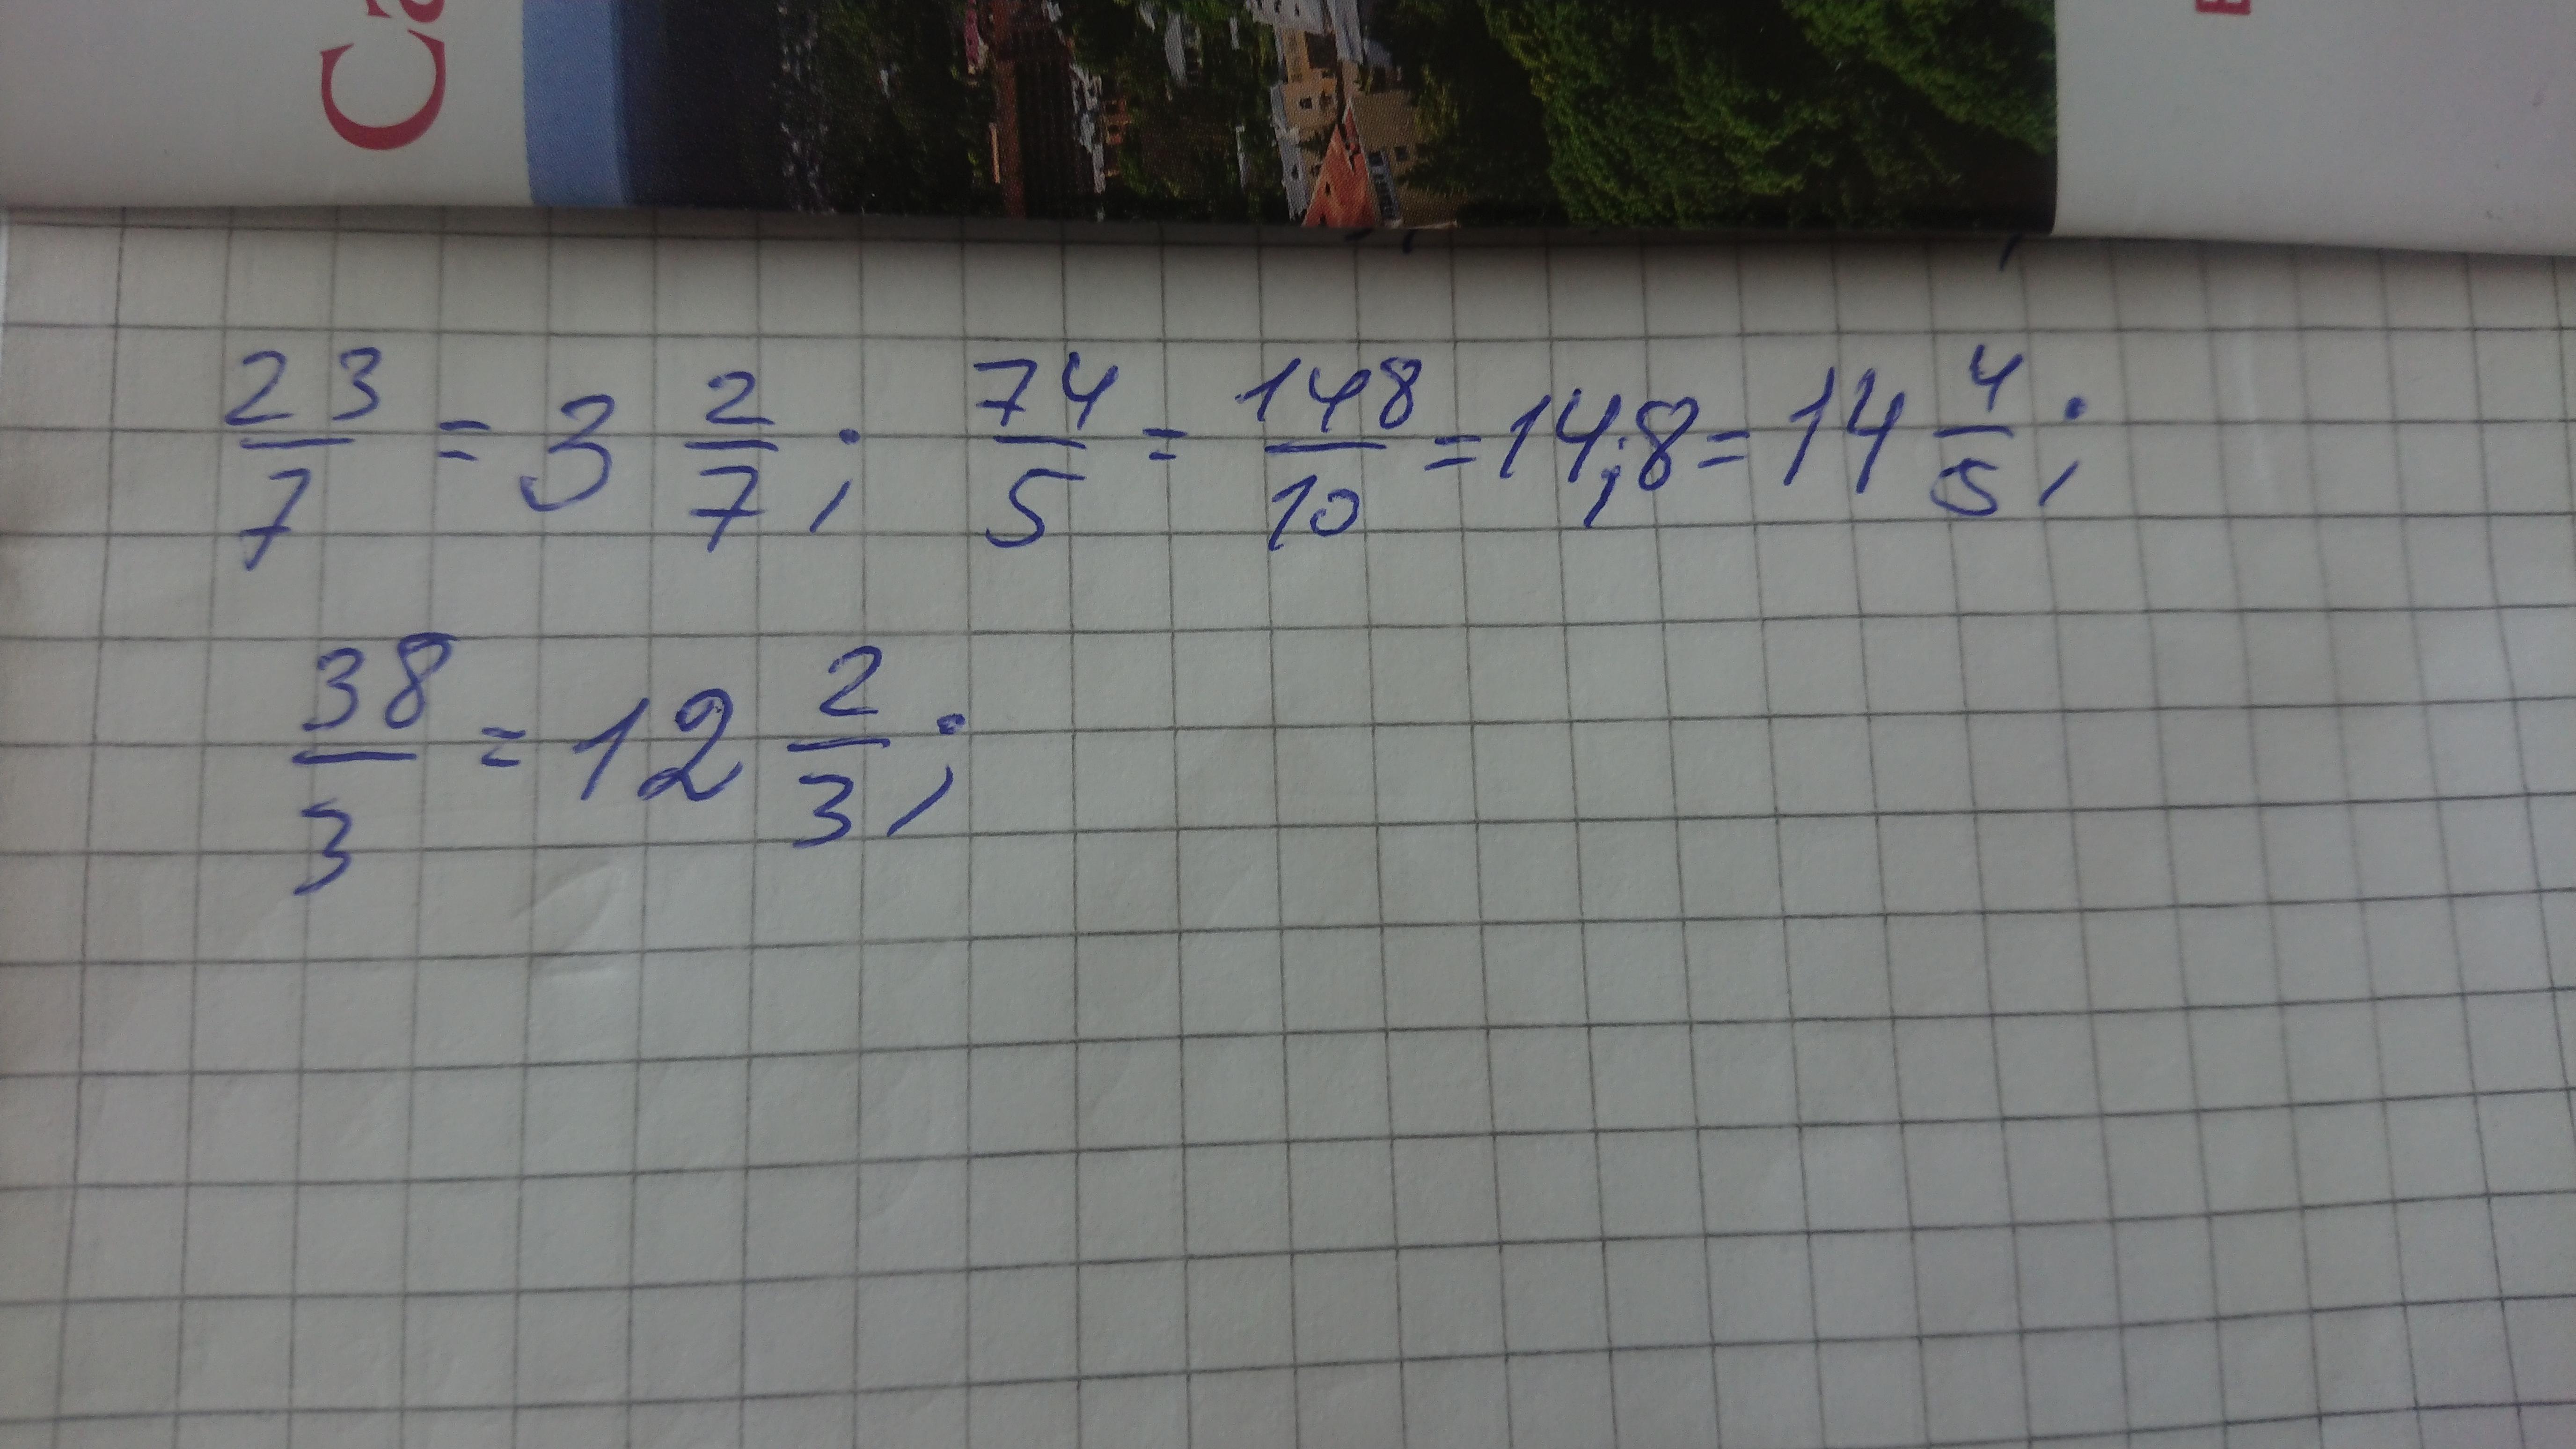 23/7 = 3 2/7; 74/5 = 148/10 = 14;8 = 14 4/5;
38/3 = 12 2/3;